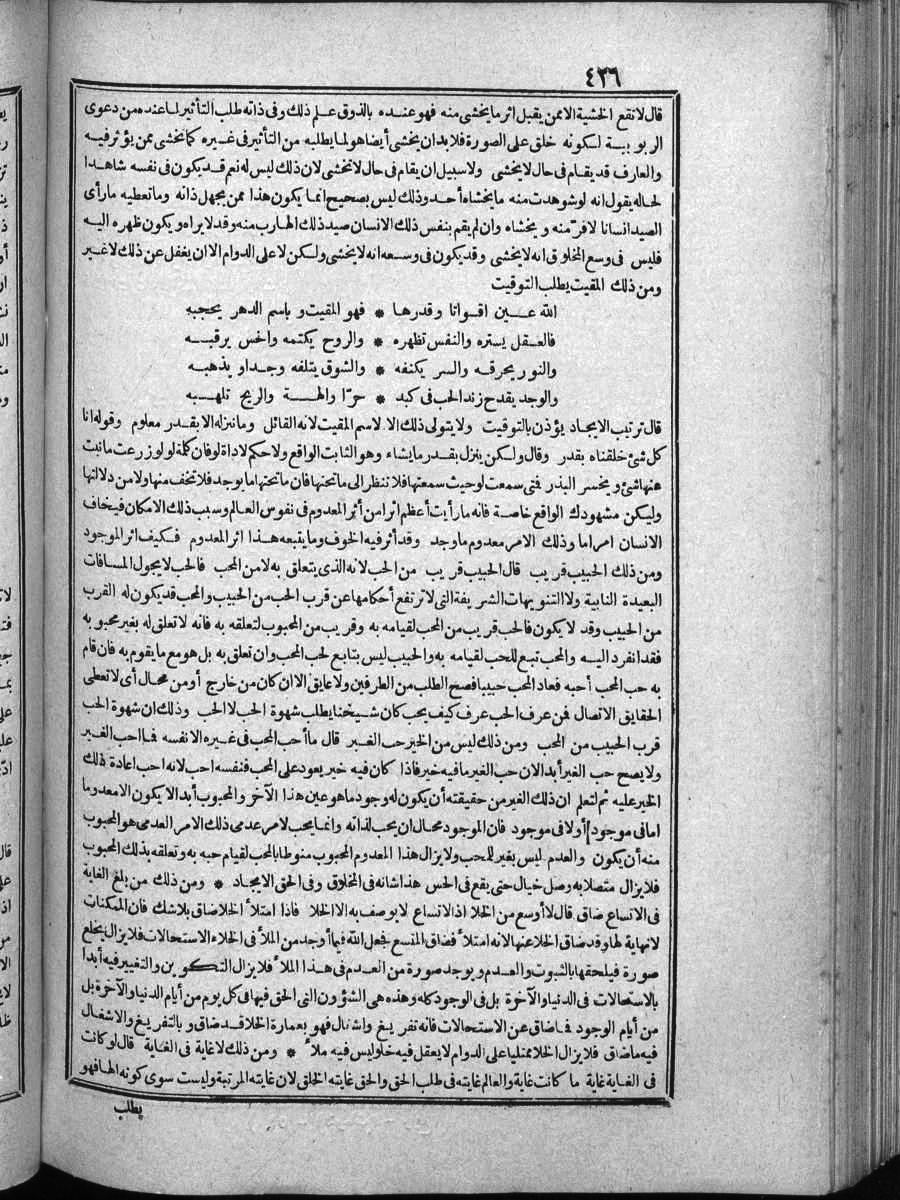 ٤٣٦
قال لا تقع الخشية الا ممن يقبل اثر ما يخشى منه فهو عنده بالذوق علم ذلك وفى ذاته طلب التأثير لما عنده من دعوى
الربوبية لكونه خلق على الصورة فلا بد ان يخشى أيضا هو لما يطلبه من التأثير فى غيره كما يخشى ممن يؤثر فيه
والعارف قد يقام فى حال لا يخشى ولا سبيل ان يقام فى حال لا تخشى لان ذلك ليس له نعم قد يكون فى نفسه شاهدا
لحاله يقول انه لو شوهدت منه ما يخشاه أحد وذلك ليس بصحيح انما يكون هذا ممن يجهل ذاته وما تعطيه ما رأى
الصيد انسانا لا فرّ منه ويخشاه وان لم يقم بنفس ذلك الانسان صيد ذلك الهارب منه وقد لا يراه ويكون ظهره اليه
فليس فى وسع المخلوق انه لا يخشى وقد يكون فى وسعه انه لا يخشى ولكن لا على الدوام الا ان يغفل عن ذلك لا غير
ومن ذلك المقيت يطلب التوقيت
الله عين اقواتا وقدرها * فهو المقيت وباسم الدهر يحجبه
فالعقل يستره والنفس تظهره * والروح يكتمه والحس يرقبه
والنور يحرقه والسر يكنفه * والشوق يتلفه وجدا ويذهبه
والوجد يقدح زند الحب فى كبد * حرّا والهة والريح تلهبه
قال ترتيب الايجاد يؤذن بالتوقيت ولا يتولى ذلك الا الاسم المقيت لانه القائل وما ننزله الا بقدر معلوم وقوله انا
كل شئ خلقناه بقدر وقال ولكن ينزل بقدر ما يشاء وهو الثابت الواقع ولا حكم لاداة لو فان كلمة لو لو زرعت ما نبت
عنها شئ ويخسر البذر فتى سمعت لو حيث سمعتها فلا تنظر الى ما تحتها فان ما تحتها ما يوجد فلا تخف منها ولا من دلالتها
وليكن مشهودك الواقع خاصة فانه ما رأيت أعظم اثرا من أثر المعدوم فى نفوس العالم وسبب ذلك الامكان فيخاف
الانسان امرا ما وذلك الامر معدوم ما وجد وقد أثر فيه الخوف وما يتبعه هذا اثر المعدوم فكيف اثر الموجود
ومن ذلك الحبيب قريب قال الحبيب قريب من الحب لانه الذى يتعلق به لا من المحب فالحب لا يجول المسافات
البعيدة النابية ولا التنويهات الشريفة التى لا ترتفع أحكامها عن قرب الحب من الحبيب والمحب قد يكون له القرب
من الحبيب وقد لا يكون فالحب قريب من المحب لقيامه به وقريب من المحبوب لتعلقه به فانه لا تعلق له بغير محبوبه
فقد انفرد اليه والمحب تبع للحب لقيامه به والحبيب ليس بتابع لحب المحب وان تعلق به بل هو مع ما يقوم به فان قام
به حب المحب أحبه فعاد المحب حبيبا فصح الطلب من الطرفين ولا عايق الا ان كان من خارج أو من محال أى لا تعطى
الحقايق الاتصال فمن عرف الحب عرف كيف يحب كان شيخنا يطلب شهوة الحب لا الحب وذلك ان شهوة الحب
قرب الحبيب من المحب ومن ذلك ليس من الخير حب الغير قال ما أحب المحب فى غيره الا نفسه فما احب الغير
ولا يصح حب الغير أبدا لان حب الغير ما فيه خير فاذا كان فيه خير يعود على المحب فنفسه احب لانه احب اعادة ذلك
الخير عليه ثم لتعلم ان ذلك الغير من حقيقته أن يكون له وجود ما هو عين هذا الآخر والمحبوب أبدا لا يكون الا معدوما
اما فى موجود أو لا فى موجود فان الموجود محال ان يحب لذاته وانما يحب لامر عدمى ذلك الامر العدمى هو المحبوب
منه أن يكون والعدم ليس بغير للمحب ولا يزال هذا المعدوم المحبوب منوطا بالمحب لقيام حبه به وتعلقه بذلك المحبوب
فلا يزال متصلا به وصل خيال حتى يقع فى الحس هذا شانه فى الخلاق وفى الحق الايجاد * ومن ذلك من بلغ الغاية
فى الاتساع ضاق قال لا أوسع من الخلا اذ الاتساع لا يوصف به الا الخلا فاذا امتلأ الخلا ضاق بلا شك فان الممكنات
لا نهاية لها وقد ضاق الخلا عنها لانه امتلأ فضاق المتسع فجعل الله فيما أوجد من الملأ فى الخلاء الاستحالات فلا يزال يخلع
صورة فيلحقها بالثبوت والعدم ويوجد صورة من العدم فى هذا الملأ فلا يزال التكوين والتغيير فيه أبدا
بالاستحالات فى الدنيا والآخرة بل فى الوجود كله وهذه هى الشؤون التى الحق فيها فى كل يوم من أيام الدنيا والآخرة بل
من أيام الوجود فما ضاق عن الاستحالات فانه تفريغ واشغال فهو بعمارة الخلا قد ضاق وبالتفريغ والاشغال
فيه ما ضاق فلا يزال الخلا ممتليا على الدوام لا يعقل فيه خلو ليس فيه ملأ * ومن ذلك لا غاية فى الغاية قال لو كانت
فى الغاية غاية ما كانت غاية والعالم غايته فى طلب الحق والحق غايته الخلق لان غايته المرتبة وليست سوى كونه الها فهو
يطلب